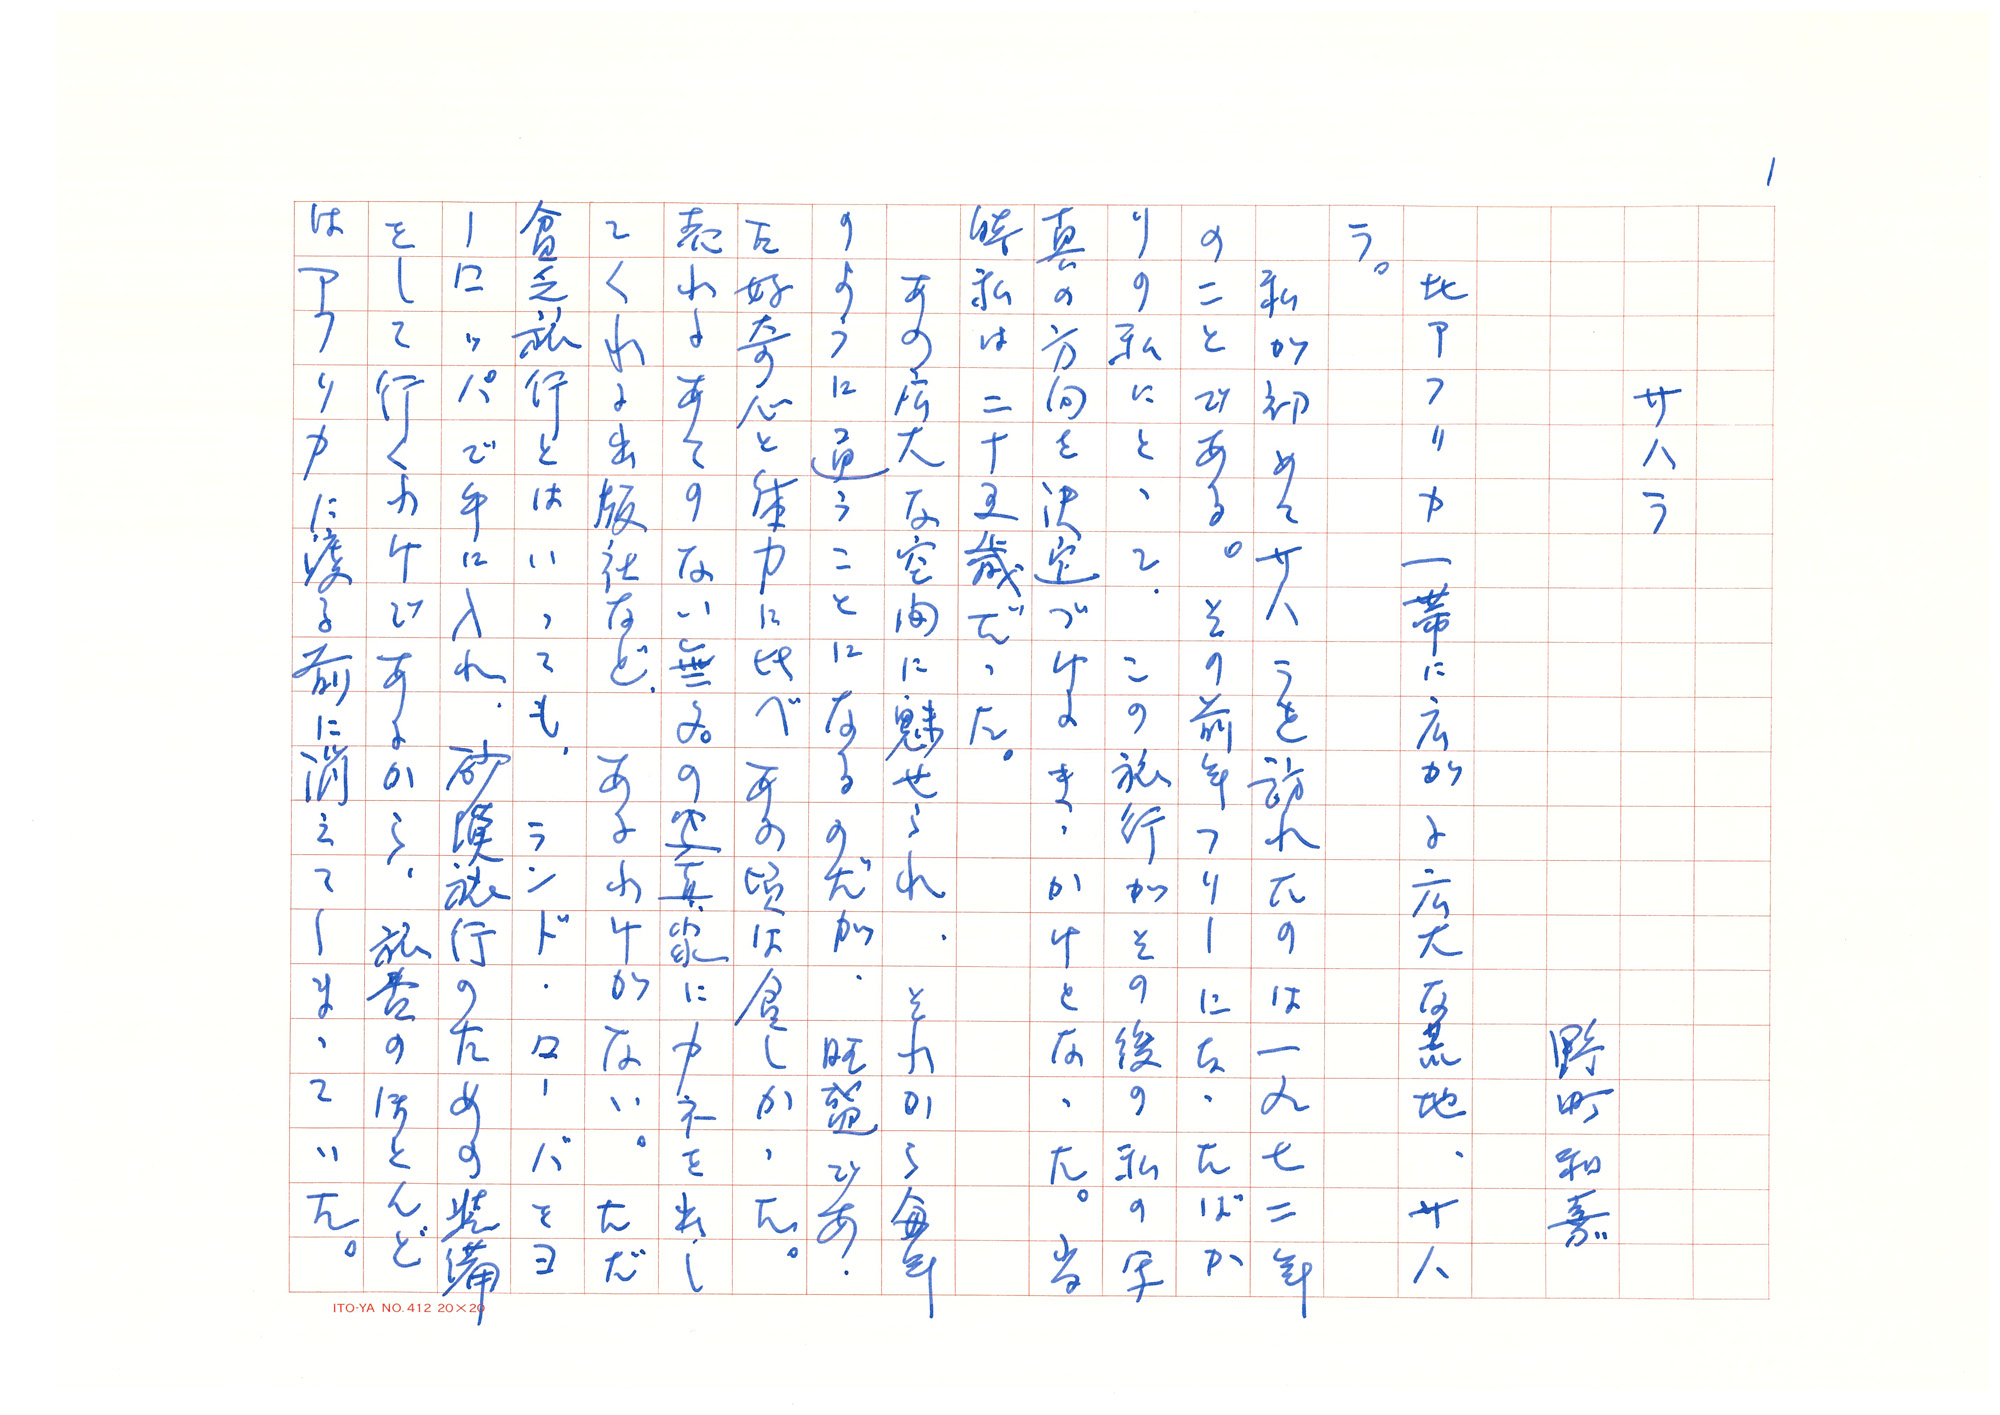 1
サハラ
野町和嘉
北アフリカ一帯に広がる広大な荒地、サハ
ラ。
私が初めてサハラを訪れたのは一九七二年
のことである。その前年フリーになったばか
りの私にとって、この旅行がその後の私の写
真の方向を決定づけるきっかけとなった。当
時私は二十五歳だった。
あの広大な空間に魅せられ、それから毎年
のように通うことになるのだが、旺盛であっ
た好奇心と体力に比べあの頃は貧しかった。
売れるあてのない無名の写真家にカネを出し
てくれる出版社など、あるわけがない。ただ
貧乏旅行とはいっても、ランド・ローバをヨ
ーロッパで手に入れ、砂漠旅行のための装備
をして行くわけであるから、旅費のほとんど
はアフリカに渡る前に消えてしまっていた。
ITO-YA NO.412 20×20